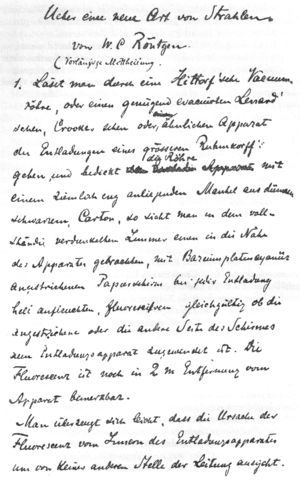 Ueber eine neue Art von Strahlen
von W. C. Röntgen.
(Vorläufige Mittheilung.
1. Lässt man durch eine Hittorf'sche Vacuum-
röhre, oder einen genügend evacuirten Lenard'
schen, Crookes'schen oder ähnlichen Apparat
die Entladungen eines grösseren Ruhmkorff's
gehen und bedeckt die Röhre mit
einem ziemlich eng anliegenden Mantel aus dünnem
schwarzem Carton, so sieht man in dem voll-
ständig verdunkelten Zimmer einen in die Nähe
des Apparates gebrachten, mit Bariumplatincyanür
angestrichenen Papierschirm bei jeder Entladung
hell aufleuchten, fluoresciren, gleichgültig ob die
angestrichene oder die andere Seite des Schirmes
dem Entladungsapparat zugewendet ist. Die
Fluorescenz ist noch in 2 m Entfernung vom
Apparat bemerkbar.
Man überzeugt sich leicht, dass die Ursache der
Fluorescenz vom Innern des Entladungsapparates
und von keiner anderen Stelle der Leitung ausgeht.